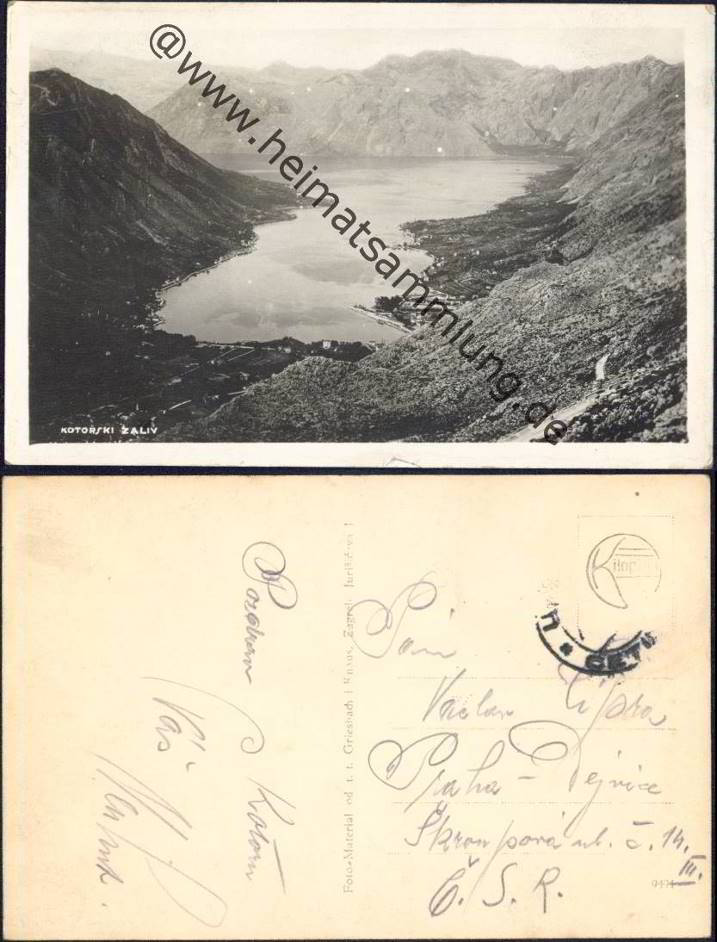 @www.heimatsammlung.de
KOTORSKI ZALIV
Pozdrav
z Kotoru
Váš
Foto-Material od t. t. Griesbach i Knaus, Zagreb, Jurišićeva 1
Pán
Václav
Praha - Dejvice
ul. č. 14.
III.
Č. S. R.